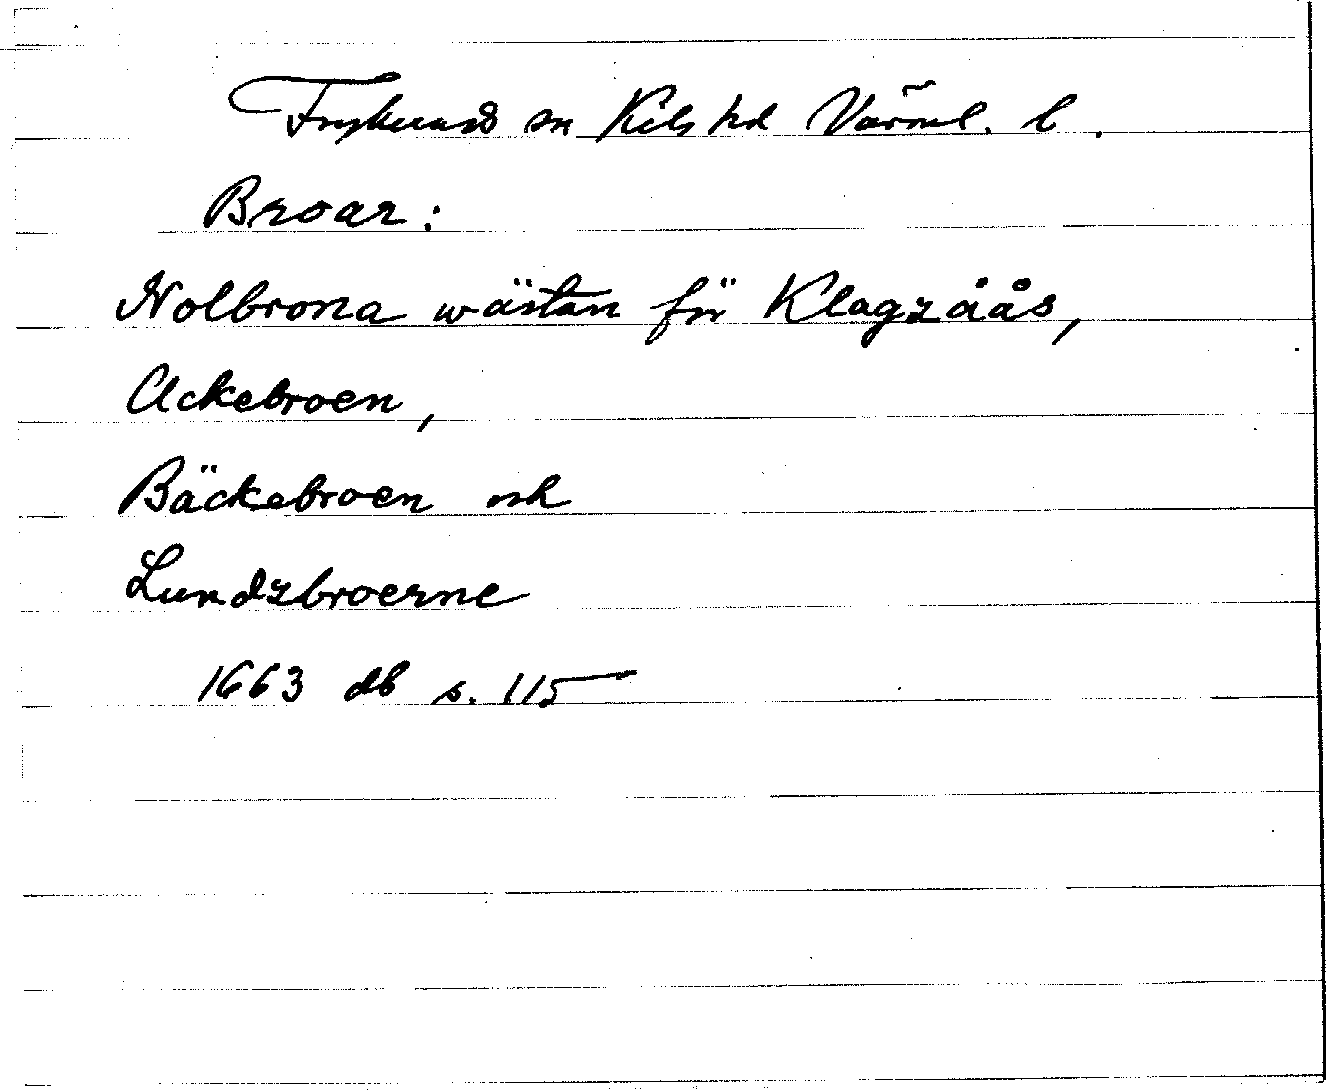 Frykerud sn Kils hd Värml. l.
Broar:
Nolbrona wästan för Klagzåås,
Ackebroen,
Bäckebroen och
Lundzbroerne
1663 db s. 115